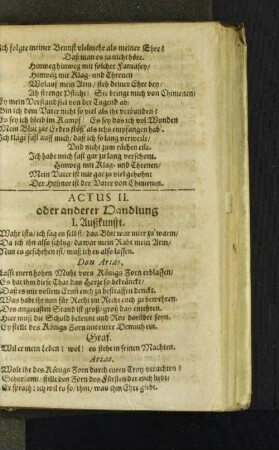 Ich folgte meiner Brunst vielmehr als meiner Ehre?
Daß man es ja nicht höre.
Hinweg hinweg mit solcher Fantasey/
Hinweg mit Klag- und Threnen
Wolauf mein Arm/ steh deiner Ehre bey/
Ah strenge Pflicht! Sie bringt mich von Chimenen/
Ey mein Verstand fiel von der Tugend ab/
Bin ich dem Vater nicht so viel als ihr verbunden?
Es sey ich bleib im Kampf! Es sey das ich vol Wunden
Mein Blut zur Erden stoß/ als ichs empfangen hab.
Ich klage fast auff mich/ daß ich so lang verweile/
Und nicht zum rächen eile.
Ich habe mich fast gar zu lang verschont.
Hinweg mit Klag- und Threnen/
Mein Vater ist mit gar zu viel gehöhnt
Der Hehner ist der Vater von Chimenen.
ACTUS II.
oder anderer Handlung
I. Außkunfft.
Wahr ists/ ich sag es selbst/ das Blut war mir zu warm/
Da ich ihn also schlug/ da war mein Raht mein Arm/
Nun es geschehen ist/ muß ich es also lassen.
Don Arias.
Lasst euren hohen Muht vors Königs Zorn erblassen/
Es hat ihm diese That das Hertze so bekränckt/
Daß er mit vollem Ernst euch zu bestraffen denckt.
Was habt ihr nun für Recht im Recht euch zu bewehren.
Des angetasten Stand ist groß/ groß das entehren.
Hier muß die Schuld bekennt und Reu darüber seyn.
Ey stellt des Königs Zorn mit eurer Demuth ein.
Graf.
Wil er mein Leben? wol! es steht in seinen Machten.
Arias.
Wolt ihr des Königs Zorn durch euren Trotz verachten?
Gehorsamt/ stillt den Zorn des Fürsten der euch liebt/
Er sprach: ich wil es so/ ihm/ was ihm Ehre giebt.